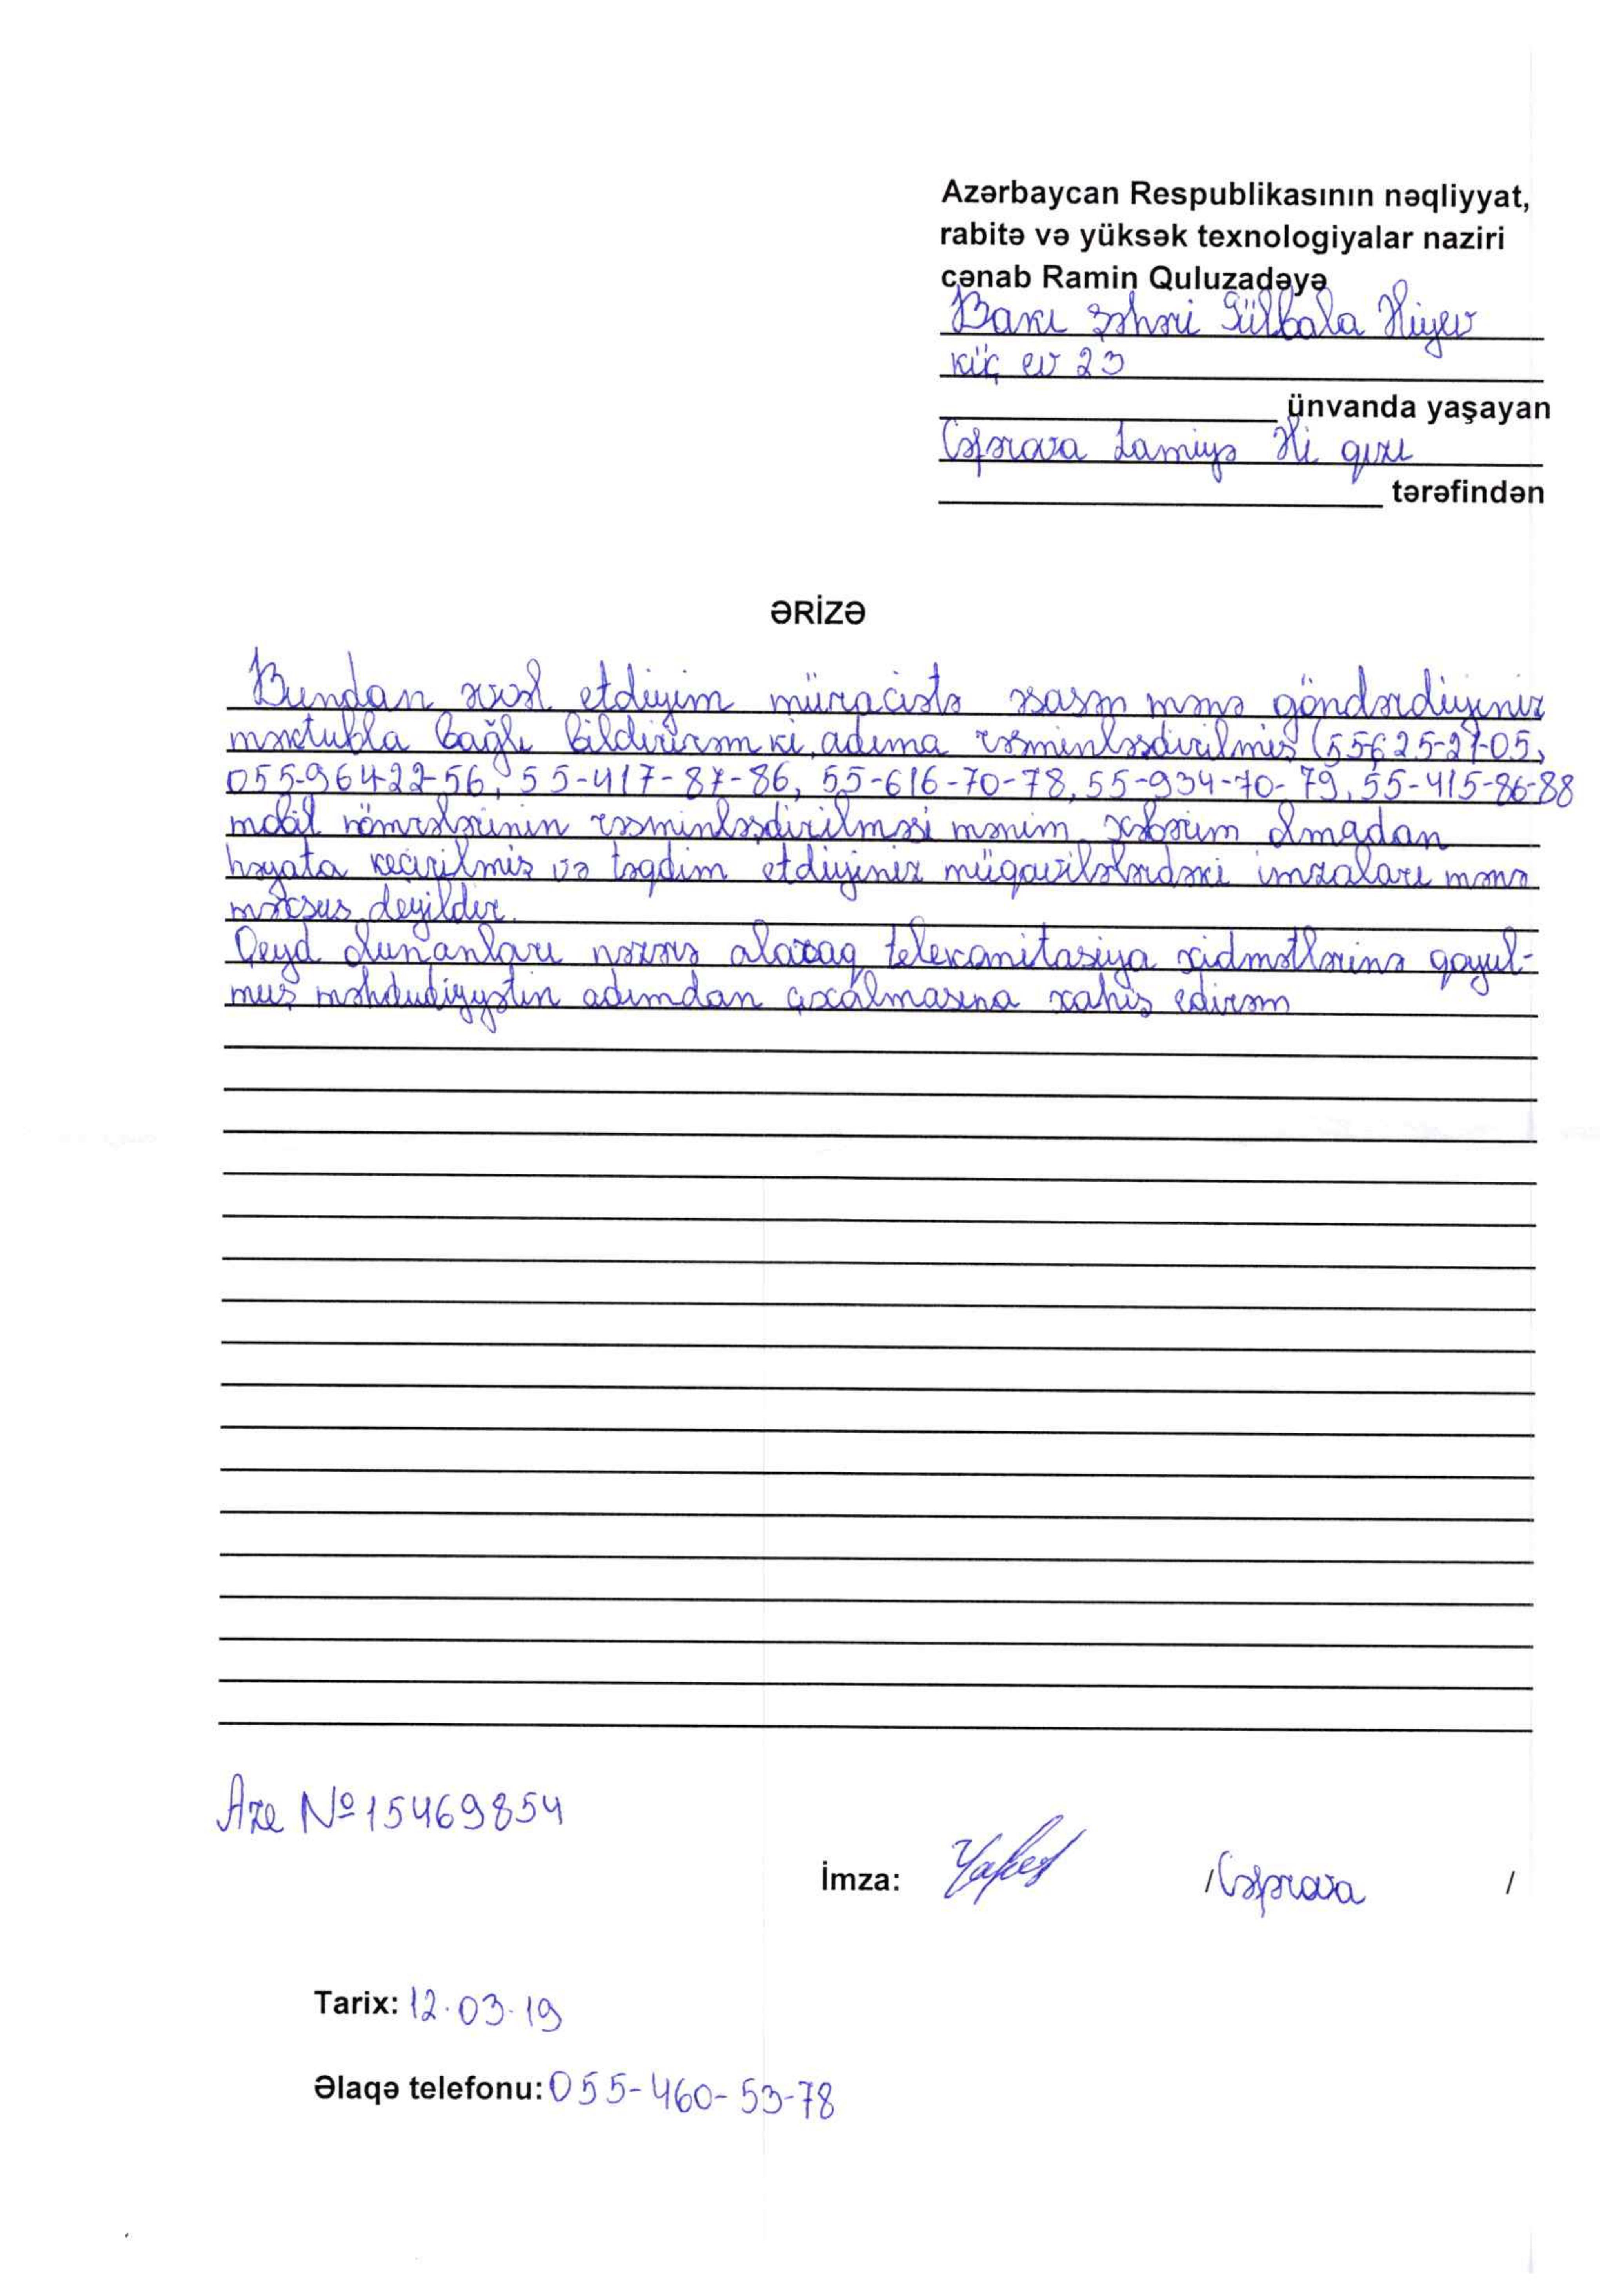 Azərbaycan Respublikasının nəqliyyat,
rabitə və yüksək texnologiyalar naziri
cənab Ramin Quluzadəyə
Bakı şəhəri Gülbala Əliyev
küç ev 23
ünvanda yaşayan
Cəfərova Lamiyə Əli qızı
tərəfindən
ƏRİZƏ
Bundan əvvəl etdiyim müraciətə əsasən mənə göndərdiyiniz
məktubla bağlı bildirirəm ki, adıma rəsmiləşdirilmiş (55625-27-05,
055-964-22-56, 55-417-87-86, 55-616-70-78, 55-934-70-79, 55-415-86-88
mobil nömrələrinin rəsminləşdirilməsi mənim xəbərim olmadan
həyata keçirilmiş və təqdim etdiyiniz müqavilələrdəki imzaları mənə
məxsus deyildir.
Qeyd olunanları nəzərə alaraq telekomitasiya xidmətlərinə qoyul-
muş məhdudiyyətin adımdan çıxalmasına xahiş edirəm
Aze №15469854
İmza: / Cəfərova /
Tarix: 12.03.19
Əlaqə telefonu: 055-460-53-78